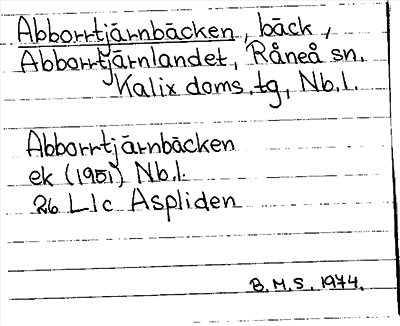 Abborrtjärnbäcken, bäck,
Abborrtjärnlandet, Råneå sn.
Kalix doms.tg, Nb.l.
Abborrtjärnbäcken
ek (1951) Nb.l.
26 L1c Aspliden
B.M.S. 1974.